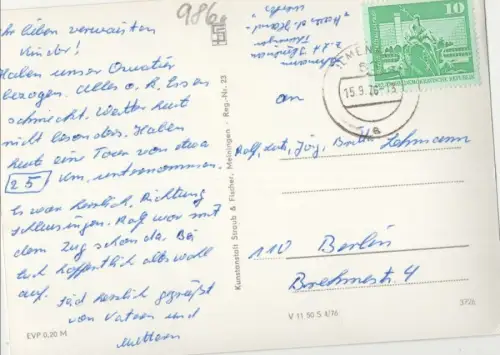 Ihr lieben verwaisten
Kinder!
Haben unser Quartier
bezogen. Alles o.k. Essen
schmeckt, Wetter heut
nicht besonders. Haben
heut eine Tour von etwa
25 km unternommen.
Es war herrlich, Richtung
Schleusingen. Ralf war mit
dem Zug schon da. Bei
Euch hoffentlich alles wohl
auf. Seid herzlich gegrüßt
von Vatern und
Muttern
EVP 0,20 M
986
Kunstanstalt Straub & Fischer, Meiningen - Reg.-Nr. 23
Lehmann
15.9.76-13
10
DEUTSCHE DEMOKRATISCHE REPUBLIK
An
Ralf, Jörg, Lehmann
110 Berlin
Brehmestr. 4
V 11 50 S 1/76
3726